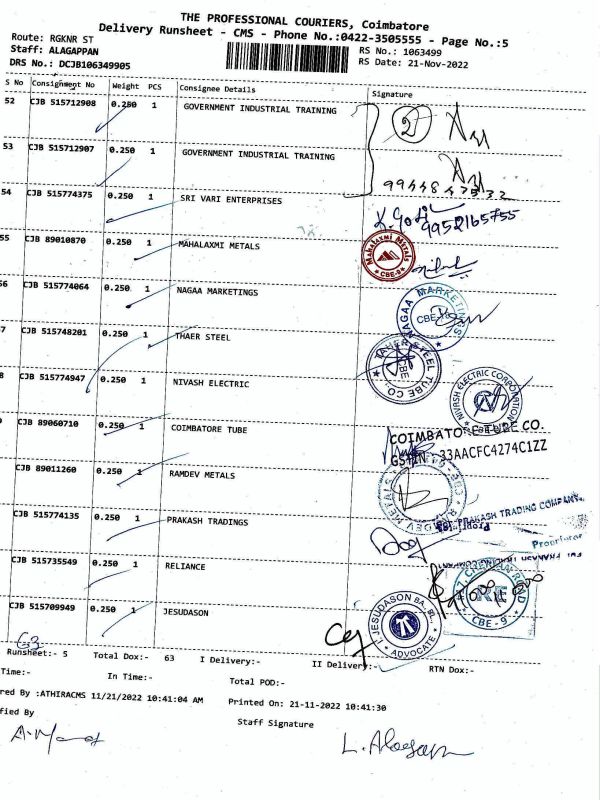 THE PROFESSIONAL COURIERS, Coimbatore
Delivery Runsheet - CMS - Phone No.:0422-3505555 - Page No.:5
Route: RGKNR ST
Staff: ALAGAPPAN
RS No.: 1063499
DRS No.: DCJB106349905
RS Date: 21-Nov-2022
S No Consignment No Weight PCS Consignee Details Signature
52 CJB 515712908 0.250 1 GOVERNMENT INDUSTRIAL TRAINING
53 CJB 515712907 0.250 1 GOVERNMENT INDUSTRIAL TRAINING
54 CJB 515774375 0.250 1 SRI VARI ENTERPRISES
9952165755
55 CJB 89010870 0.250 1 MAHALAXMI METALS
Mahalaxmi Metals
CBE-9
56 CJB 515774064 0.250 1 NAGAA MARKETINGS
NAGAA MARKETINGS
7 CJB 515748201 0.250 1 THAER STEEL
TAHER STEEL TUBE CO.
CBE
8 CJB 515774947 0.250 1 NIVASH ELECTRIC
NIVASH ELECTRIC CORPORATION
CJB 89060710 0.250 1 COIMBATORE TUBE
COIMBATORE TUBE CO.
GSTIN : 33AACFC4274C1ZZ
CJB 89011260 0.250 1 RAMDEV METALS
CJB 515774135 0.250 1 PRAKASH TRADINGS
PRAKASH TRADING COMPANY
Proprietor
CJB 515735549 0.250 1 RELIANCE
CBE - 9
CJB 515709949 0.250 1 JESUDASON
JESUDASON
ADVOCATE
63
Runsheet:- 5 Total Dox:- 63 I Delivery:- II Delivery:- RTN Dox:-
Time:- In Time:- Total POD:-
red By :ATHIRACMS 11/21/2022 10:41:04 AM Printed On: 21-11-2022 10:41:30
fied By Staff Signature
L. Alagappan